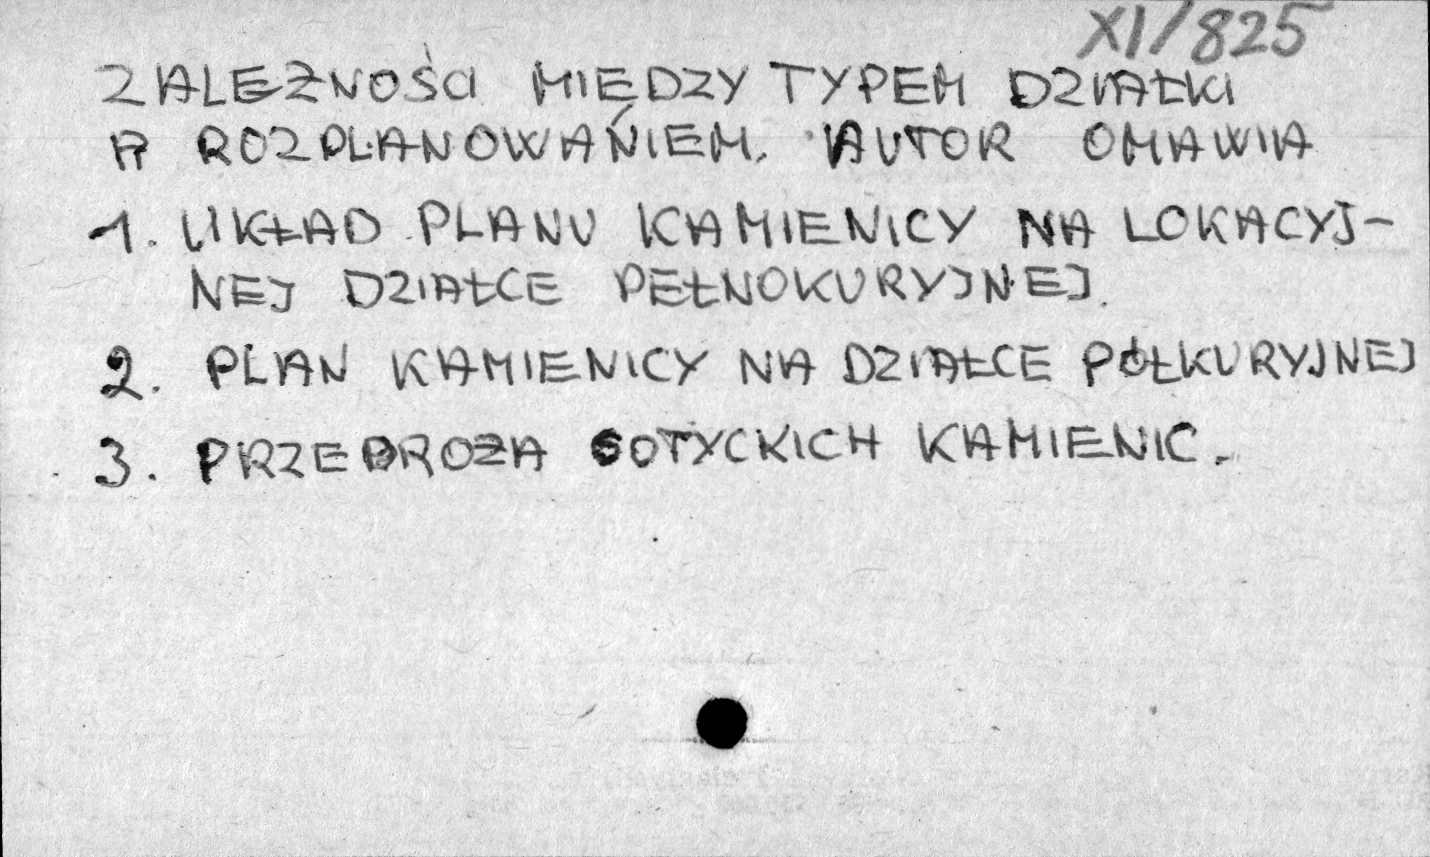 XI/825
ZALEŻNOŚCI MIĘDZY TYPEM DZIAŁKI
A ROZPLANOWAŃIEM. AUTOR OMAWIA
1. UKŁAD PLANU KAMIENICY NA LOKACYJ-
NEJ DZIAŁCE PEŁNOKURYJNEJ.
2. PLAN KAMIENICY NA DZIAŁCE PÓŁKURYJNEJ
3. PRZEDROŻA GOTYCKICH KAMIENIC.